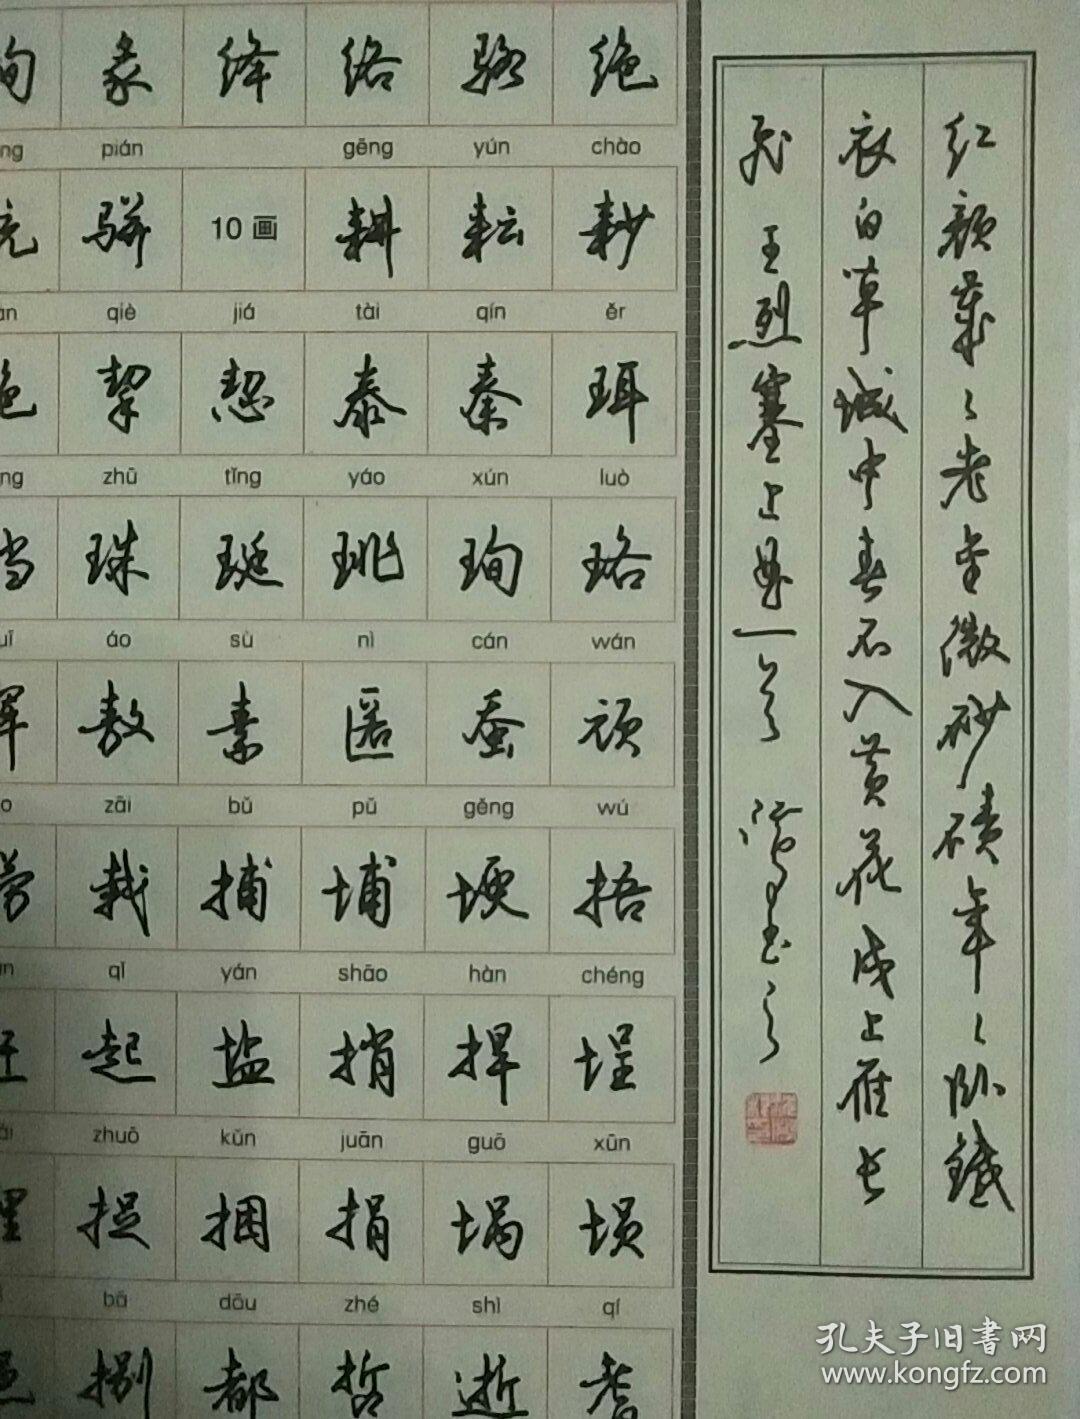 彖 绛 络 骆 绝
pián gēng yún chào
骈 10画 耕 耘 耖
qiè jiá tài qín ěr
挈 恝 泰 秦 珥
zhū tǐng yáo xún luò
珠 珽 珧 珣 珞
áo sù nì cán wán
敖 素 匿 蚕 顽
zāi bǔ pǔ gěng wú
栽 捕 埔 埂 捂
qǐ yán shāo hàn chéng
起 盐 捎 捍 埕
zhuō kǔn juān guō xūn
捉 捆 捐 埚 埙
bā dōu zhé shì qí
捌 都 哲 逝 耆
红颜歲〻老金微砂碛年〻卧鐵
衣白草城中春不入黄花戍上雁长
飞 王烈塞上曲一首 书之
孔夫子旧书网
www.kongfz.com